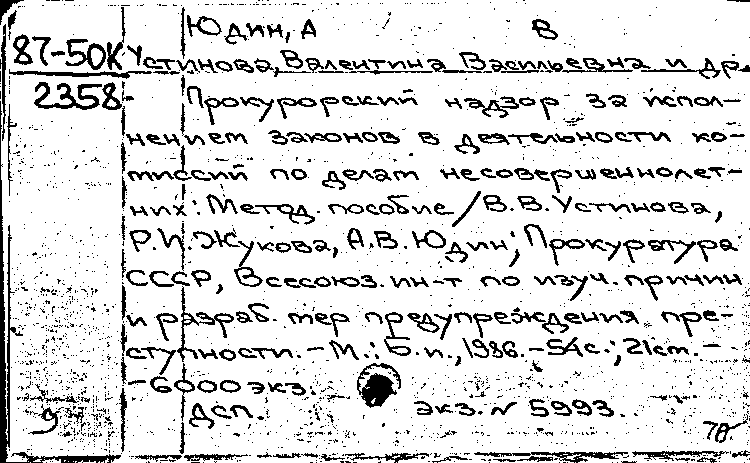 Юдин, А В
87-50К Устинова, Валентина Васильевна и др.
2358- Прокурорский надзор за испол-
нением законов в деятельности ко-
миссий по делам несовершеннолет-
них: Метод. пособие / В.В. Устинова,
Р.И. Жукова, А.В. Юдин; Прокуратура
СССР, Всесоюз. ин-т по изуч. причин
и разраб. мер предупреждения пре-
ступности. - М.: Б.и., 1986. - 54с.; 21см. -
- 6000 экз.
9 ДСП. экз. № 5993.
70.